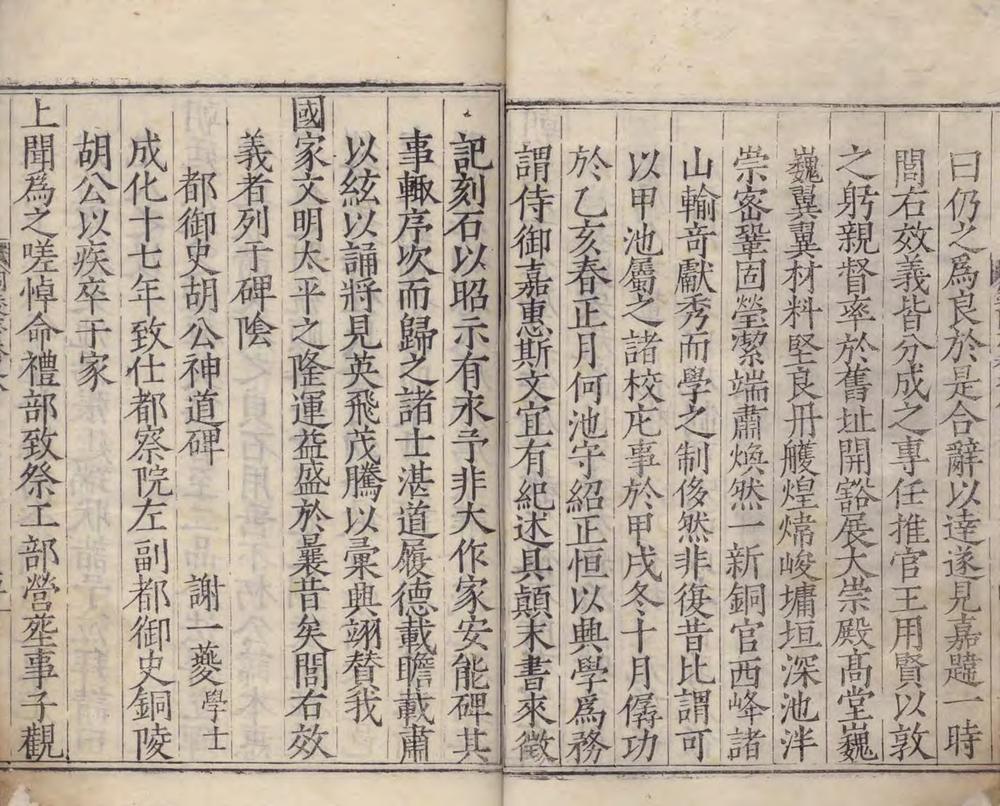 曰仍之爲良於是合辭以達遂見嘉韙一時
閭右效義皆分成之專任推官王用賢以敦
之躬親督率於舊址開豁展大崇殿高堂巍
巍翼翼材料堅良丹雘煌煒峻墉垣深池泮
崇密鞏固瑩潔端肅煥然一新銅官西峰諸
山輸奇獻秀而學之制侈然非復昔比謂可
以甲池屬之諸校庀事於甲戌冬十月僝功
於乙亥春正月何池守紹正恒以興學爲務
謂侍御嘉惠斯文宜有紀述具顛末書來徵
記刻石以昭示有永予非大作家安能碑其
事輙序次而歸之諸士湛道履德載瞻載肅
以絃以誦將見英飛茂騰以彙興翊賛我
國家文明太平之隆運益盛於曩昔矣閭右效
義者列于碑陰
都御史胡公神道碑 謝一夔學士
成化十七年致仕都察院左副都御史銅陵
胡公以疾卒于家
上聞爲之嗟悼命禮部致祭工部營塋事子觀